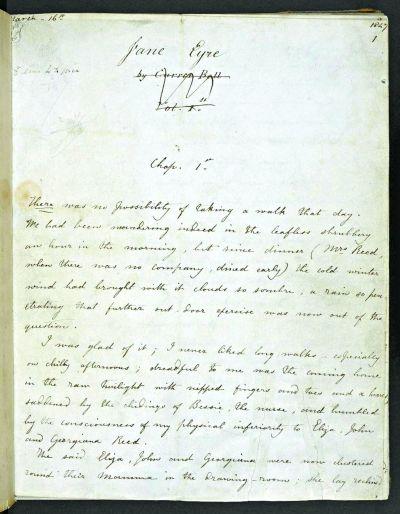 March - 16th
1847
1
Jane Eyre
by Currer Bell
Vol. 1.st
Chap. 1st
There was no possibility of taking a walk that day.
We had been wandering indeed in the leafless shrubbery
an hour in the morning, but since dinner (Mrs Reed,
when there was no company, dined early) the cold winter
wind had brought with it clouds so sombre, a rain so pene
trating that further out-door exercise was now out of the
question.
I was glad of it; I never liked long walks - especially
on chilly afternoons; dreadful to me was the coming home
in the raw twilight with nipped fingers and toes and a heart
saddened by the chidings of Bessie, the nurse, and humbled
by the consciousness of my physical inferiority to Eliza, John
and Georgiana Reed.
The said Eliza, John and Georgiana were now clustered
round their Mamma in the drawing-room; she lay reclined